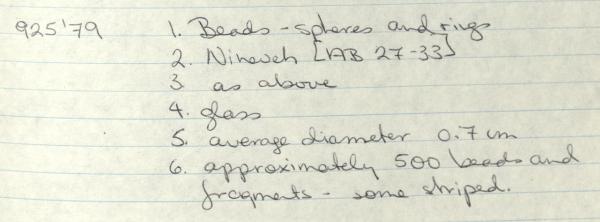 925'79 1. Beads - spheres and rings
2. Nineveh [AB 27-33]
3 as above
4. glass
5. average diameter 0.7 cm
6. approximately 500 beads and
fragments - some striped.